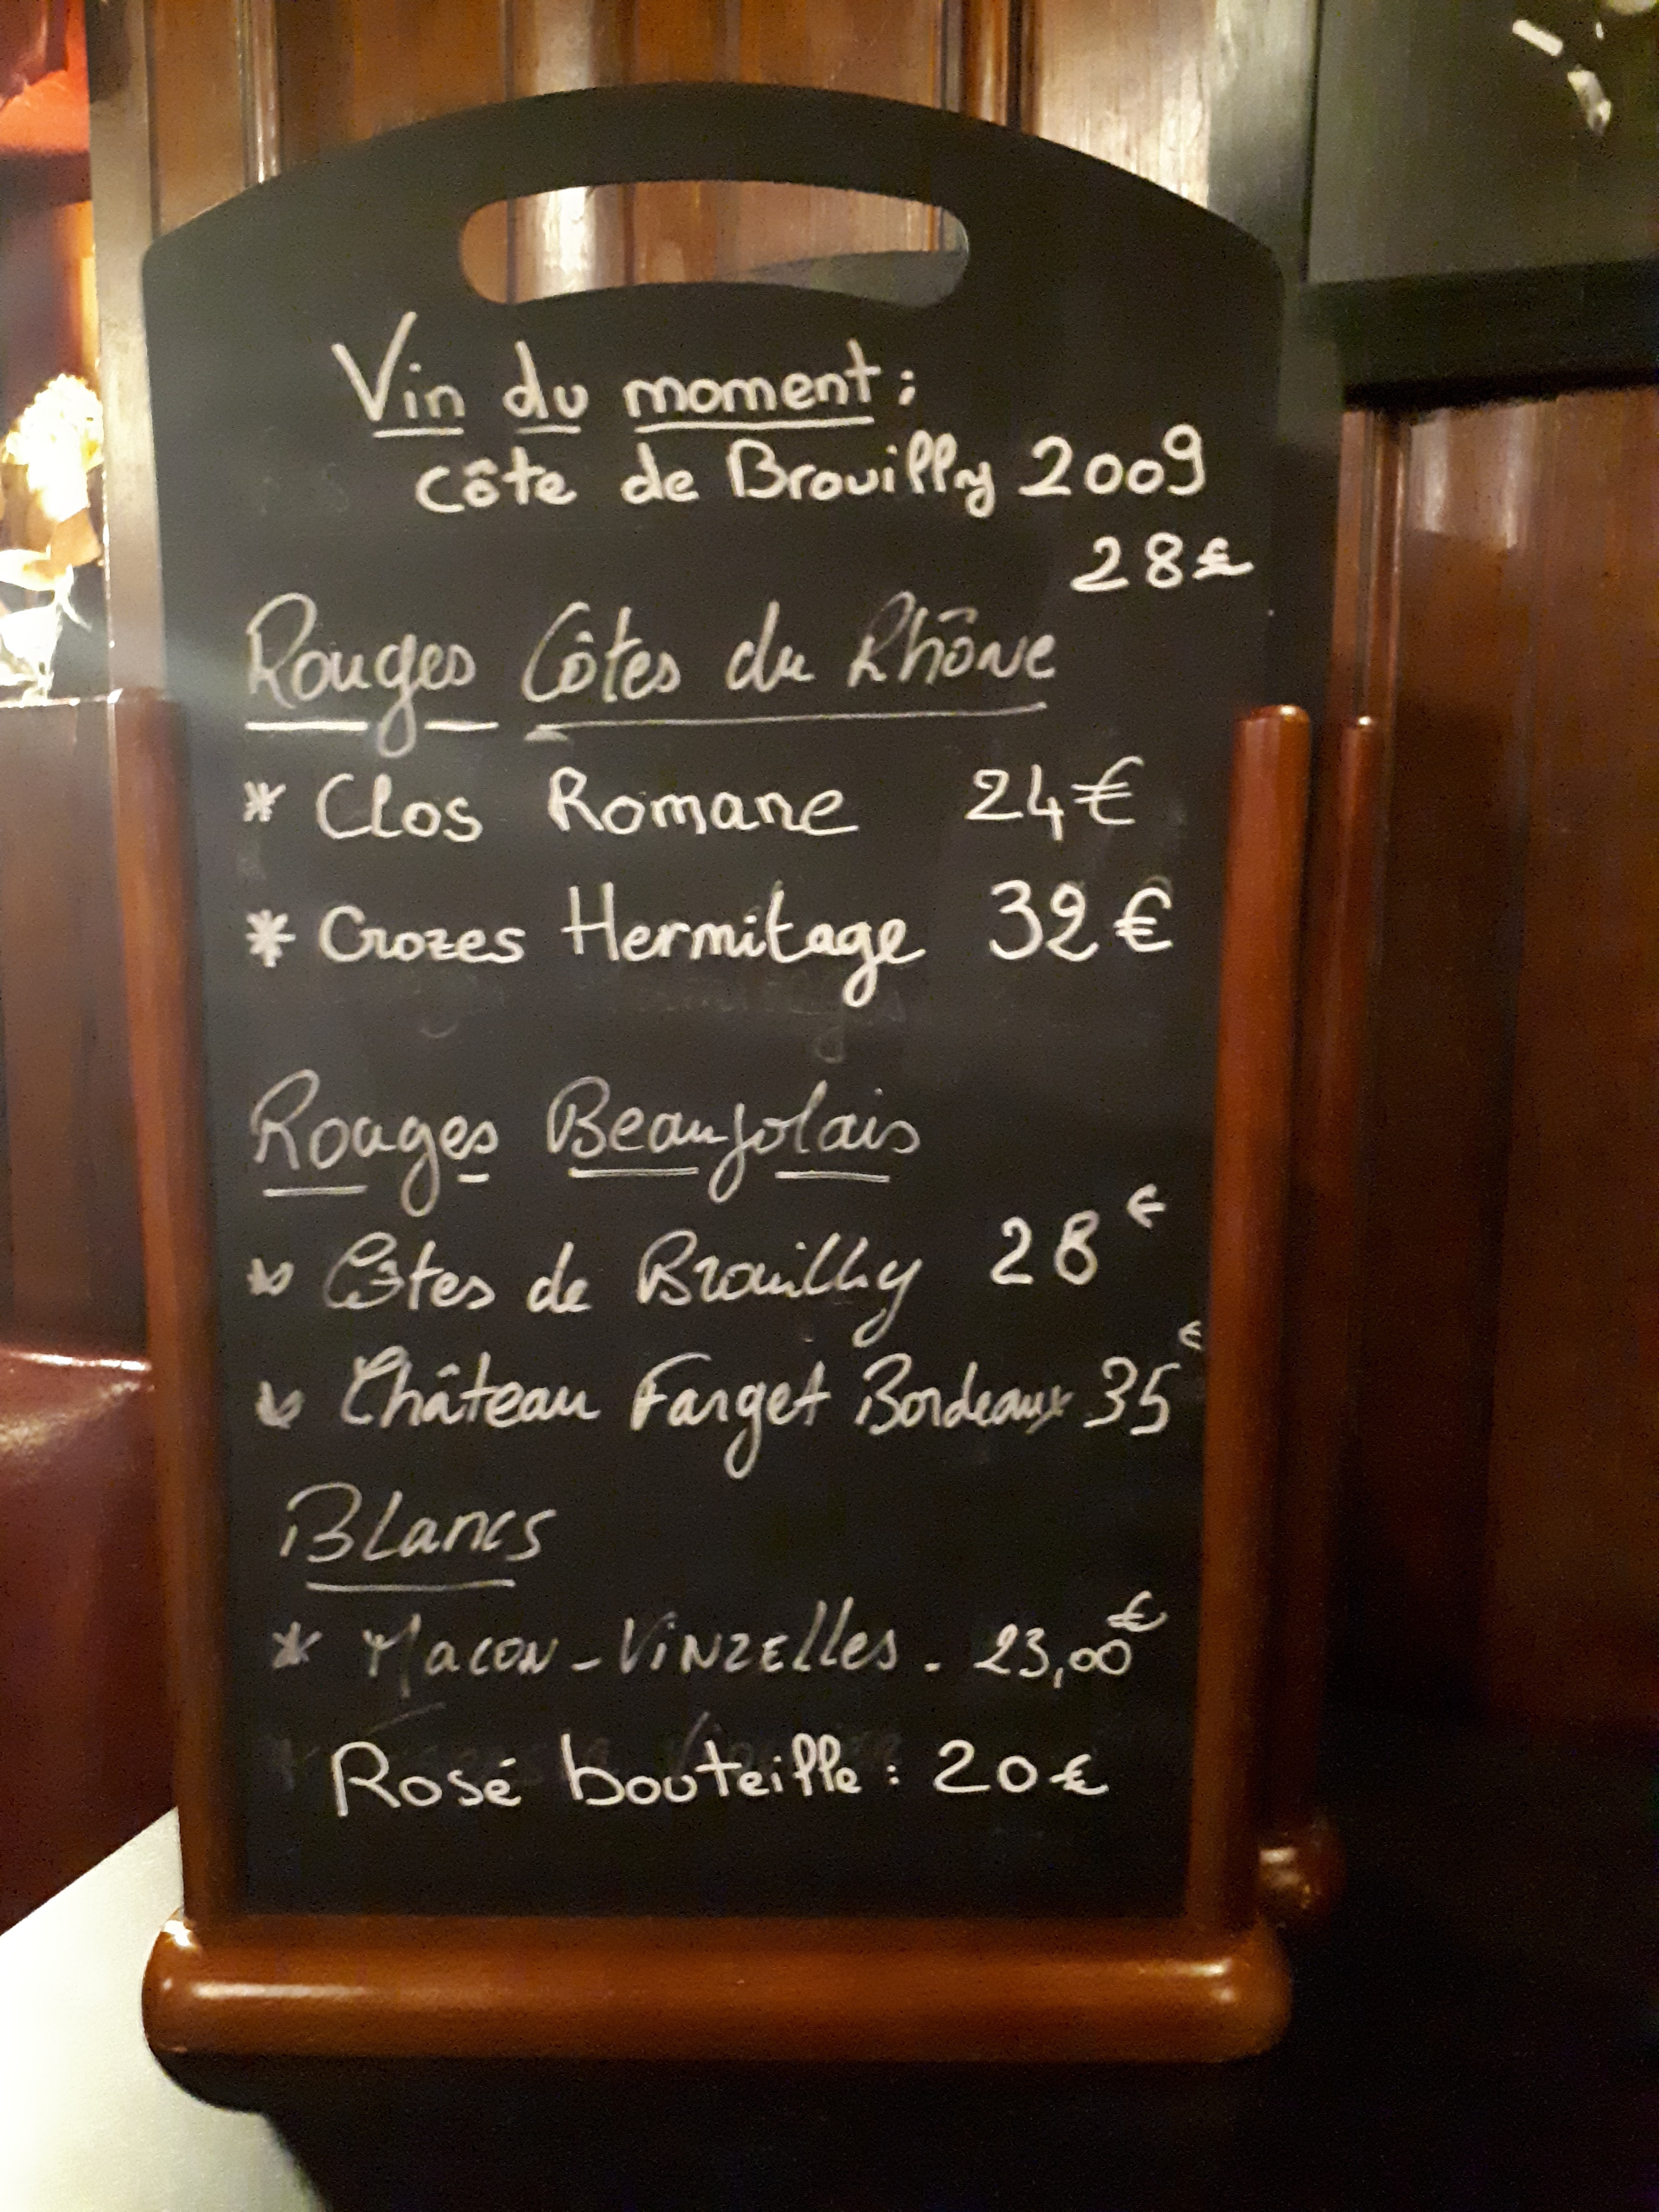 Vin du moment :
côte de Brouilly 2009
28€
Rouges Côtes du Rhône
* Clos Romane 24€
* Crozes Hermitage 32€
Rouges Beaujolais
* Côtes de Brouilly 28€
* Château Farget Bordeaux 35€
Blancs
* Macon-Vinzelles. 23,00€
Rosé bouteille : 20€